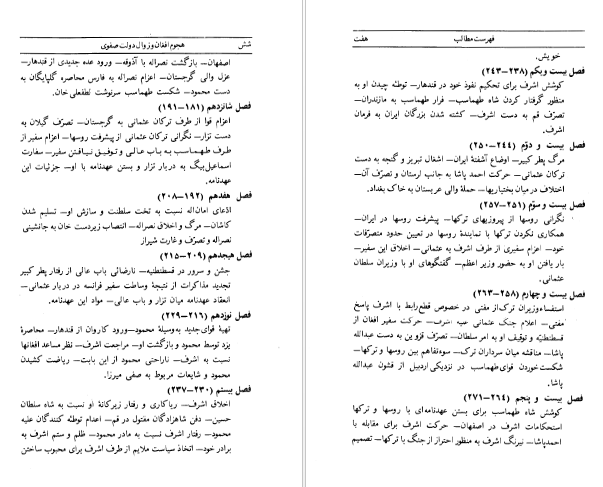 شش
هجوم افغان و زوال دولت صفوی
اصفهان— بازگشت نصراله با آذوقه— ورود عده جدیدی از قندهار—
عزل والی گرجستان— اعزام نصراله به فارس محاصره گلپایگان به
دست محمود— شکست طهماسب سرنوشت لطفعلی خان.
فصل شانزدهم (۱۸۱—۱۹۱)
اعزام قوا از طرف ترکان عثمانی به گرجستان— تصرّف گیلان به
دست تزار— نگرانی ترکان عثمانی از پیشرفت روسها— اعزام سفیر از
طرف طهماسب به باب عالی و توفیق نیافتن سفیر— سفارت
اسماعیل‌بیگ به دربار تزار و بستن عهدنامه با او— جزئیات این
عهدنامه.
فصل هفدهم (۱۹۲—۲۰۸)
ادّعای امان‌اله نسبت به تخت سلطنت و سازش او— تسلیم شدن
کاشان— مرگ و اخلاق نصراله— انتصاب زبردست خان به جانشینی
نصراله و تصرّف و غارت شیراز
فصل هیجدهم (۲۰۹—۲۱۵)
جشن و سرور در قسطنطنیه— نارضائی باب عالی از رفتار پطر کبیر
تجدید مذاکرات از نتیجۀ وساطت سفیر فرانسه در دربار عثمانی—
انعقاد عهدنامه میان تزار و باب عالی— مواد این عهدنامه.
فصل نوزدهم (۲۱۶—۲۲۹)
تهیۀ قوای جدید به‌وسیلۀ محمود—ورود کاروان از قندهار— محاصرۀ
یزد توسط محمود و بازگشت او— مراجعت اشرف— نظر مساعد افغانها
نسبت به اشرف— ناراحتی محمود از این بابت— ریاضت کشیدن
محمود و شایعات مربوط به صفی میرزا.
فصل بیستم (۲۳۰—۲۳۷)
اخلاق اشرف— ریاکاری و رفتار زیرکانۀ او نسبت به شاه سلطان
حسین— دفن شاهزادگان مقتول در قم— اعدام توطئه کنندگان علیه
محمود— رفتار اشرف نسبت به مادر محمود— ظلم و ستم اشرف به
برادر خود— اتخاذ سیاست ملایم از طرف اشرف برای محبوب ساختن
فهرست مطالب
هفت
خویش.
فصل بیست ویکم (۲۳۸—۲۴۳)
کوشش اشرف برای تحکیم نفوذ خود در قندهار— توطئه چیدن او به
منظور گرفتار کردن شاه طهماسب— فرار طهماسب به مازندران—
تصرّف قم به دست اشرف— کشته شدن بزرگان ایران به فرمان
اشرف.
فصل بیست و دوّم (۲۴۴—۲۵۰)
مرگ پطر کبیر— اوضاع آشفتۀ ایران— اشغال تبریز و گنجه به دست
ترکان عثمانی— حرکت احمد پاشا به جانب لرستان و تصرّف آن—
اختلاف در میان بختیاریها— حملۀ والی عربستان به خاک بغداد.
فصل بیست و سوّم (۲۵۱—۲۵۷)
نگرانی روسها از پیروزیهای ترکها— پیشرفت روسها در ایران—
همکاری نکردن ترکها با نمایندۀ روسها در تعیین حدود متصرّفات
خود— اعزام سفیری از طرف اشرف به عثمانی— اخلاق این سفیر—
بار یافتن او به حضور وزیر اعظم— گفتگوهای او با وزیران سلطان
عثمانی.
فصل بیست و چهارم (۲۵۸—۲۶۳)
استفساء وزیران ترک از مفتی در خصوص قطع رابط با اشرف پاسخ
مفتی— اعلام جنگ عثمانی علیه اشرف— حرکت سفیر افغان از
قسطنطنیه و توقیف او به امر سلطان— تصرّف قزوین به دست عبدالله
پاشا— مناقشه میان سرداران ترک— سوءتفاهم بین روسها و ترکها—
شکست خوردن قوای طهماسب در نزدیکی اردبیل از قشون عبدالله
پاشا.
فصل بیست و پنجم (۲۶۴—۲۷۱)
کوشش شاه طهماسب برای بستن عهدنامه‌ای با روسها و ترکها
استحکامات اشرف در اصفهان— حرکت اشرف برای مقابله با
احمدپاشا— نیرنگ اشرف به منظور احتراز از جنگ با ترکها— تصمیم